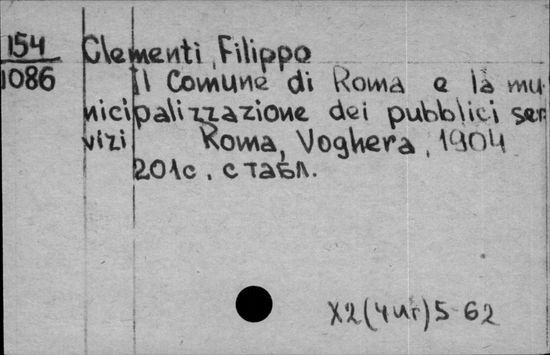 154
1086
Clementi, Filippo
Il Comune di Roma e la mu
nicipalizzazione dei pubblici ser
vizi Roma, Voghera, 1904
201c. с табл.
X2(4иг)5-62